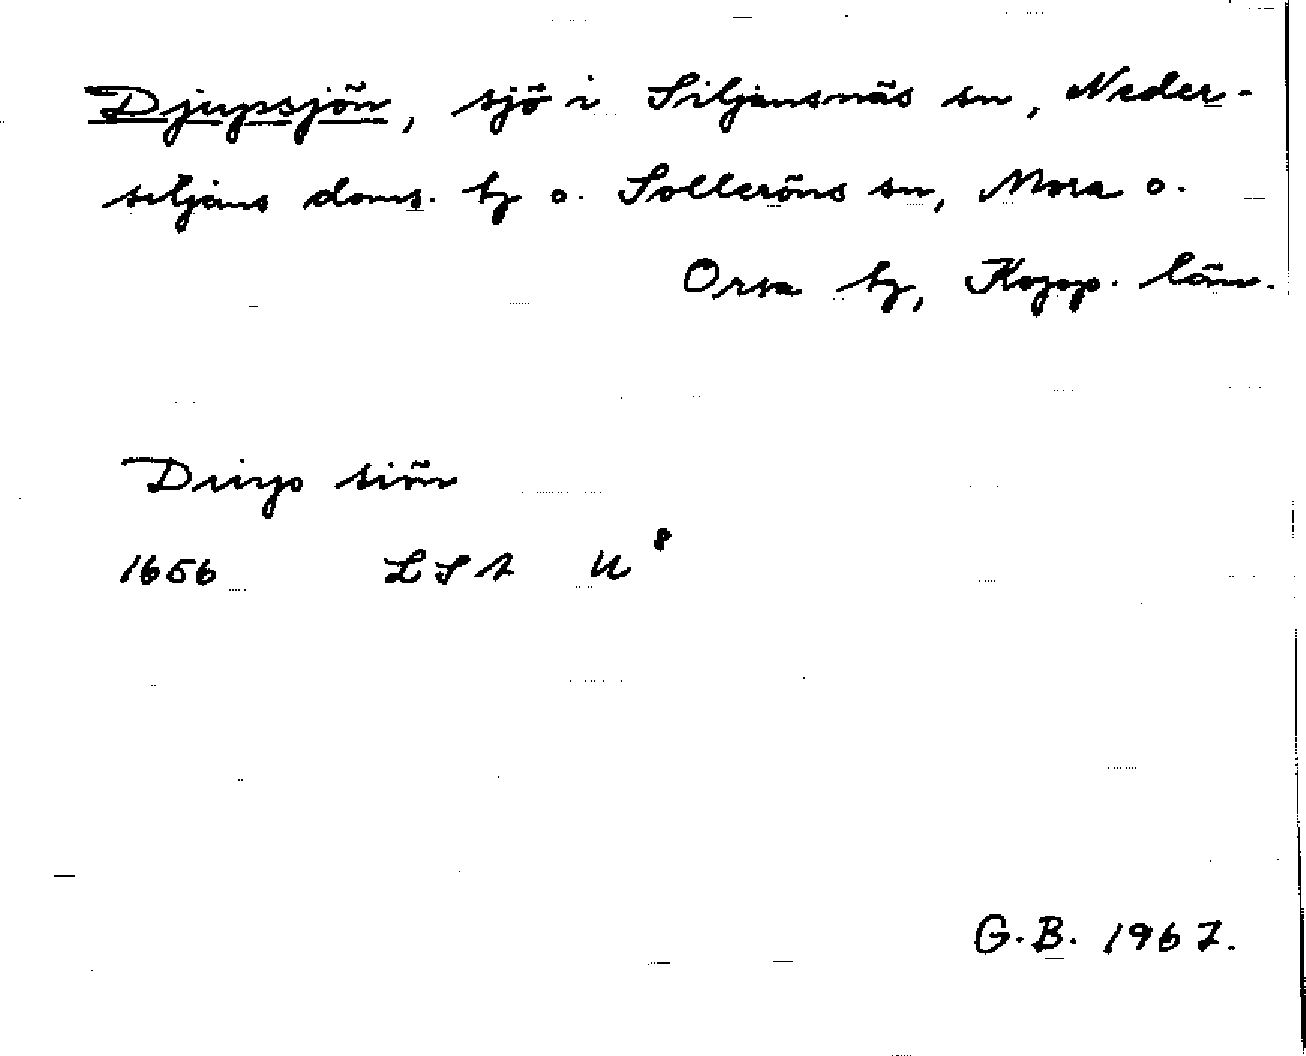 Djupsjön, sjö i Siljansnäs sn, Neder-
siljans doms. tg o. Solleröns sn, Mora o.
Orsa tg, Kopp. län.
Diup siön
1656 LSA U⁸
G.B. 1967.